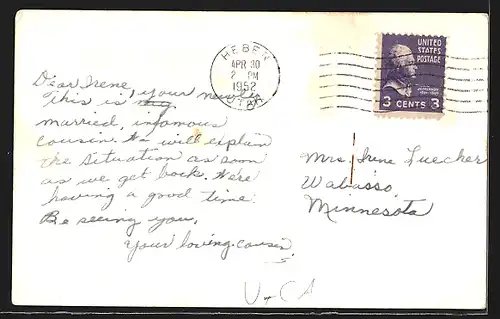 HEBER
APR 30
2 PM
1952
UTAH
UNITED
STATES
POSTAGE
3 CENTS 3
Dear Irene,
This is my, your newly
married, infamous
cousin. We will explain
the situation as soon
as we get back. We're
having a good time.
Be seeing you,
Your loving cousin
Mrs. Irene Luecker
Wabasso,
Minnesota